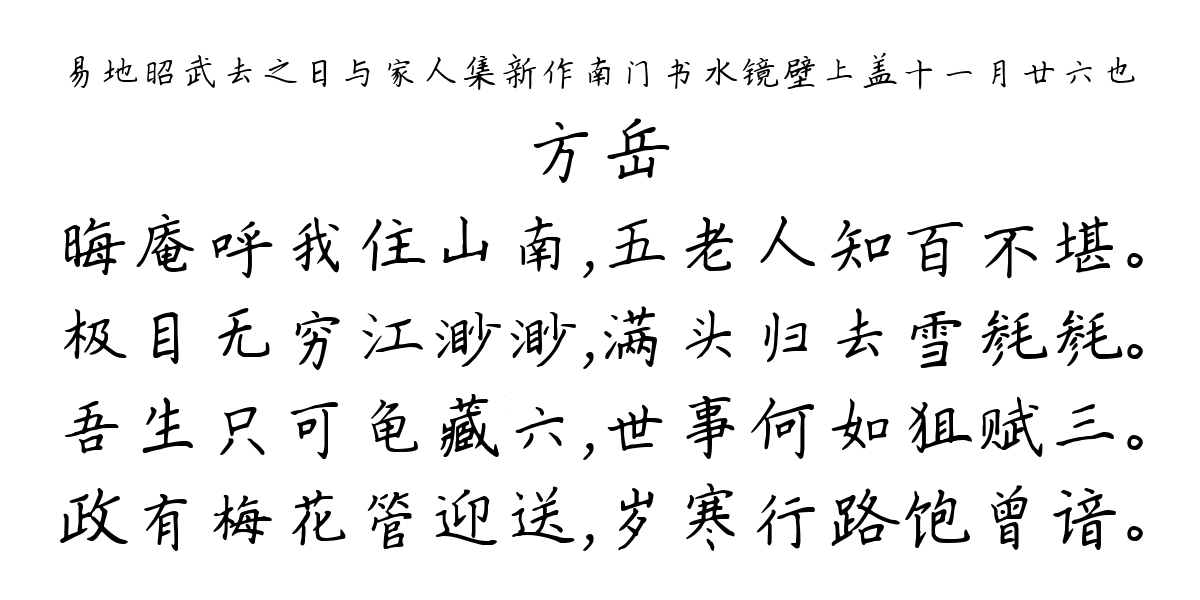 易地昭武去之日与家人集新作南门书水镜壁上盖十一月廿六也
方岳
晦庵呼我住山南,五老人知百不堪。
极目无穷江渺渺,满头归去雪毵毵。
吾生只可龟藏六,世事何如狙赋三。
政有梅花管迎送,岁寒行路饱曾谙。